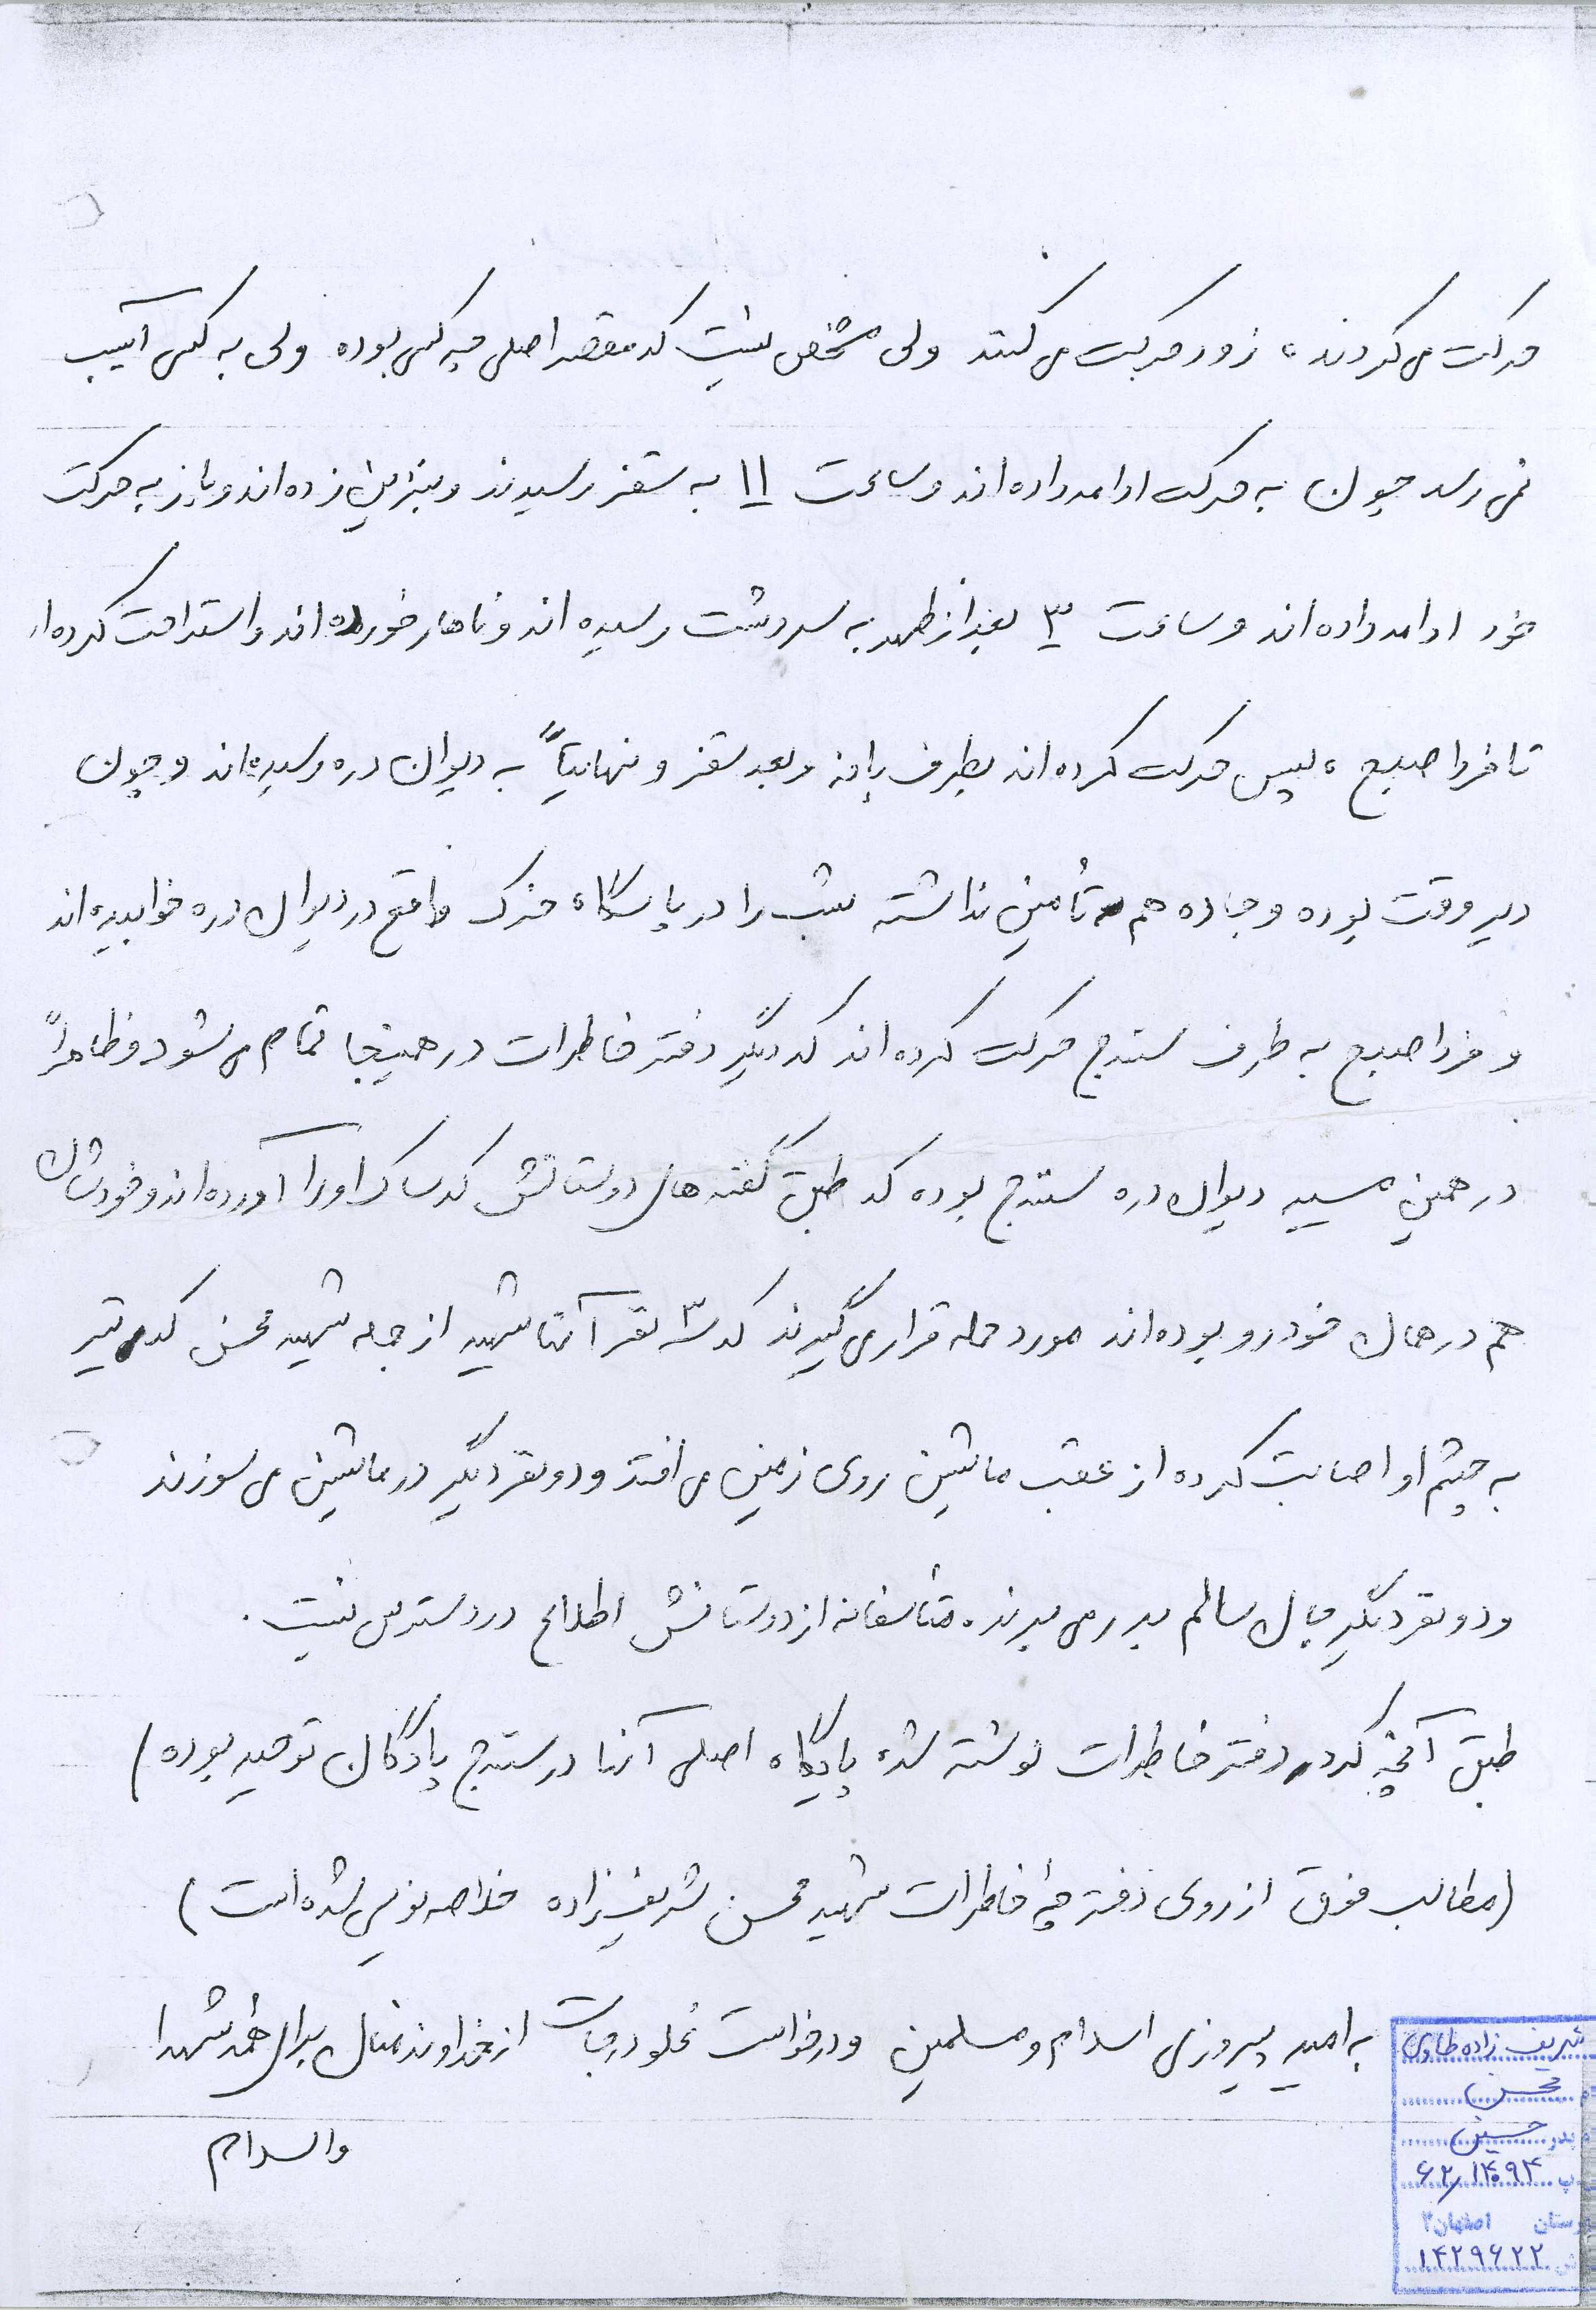 حرکت می کردند، زود حرکت می کنند ولی مشخص نیست که مقصر اصلی چه کسی بوده ولی به کسی آسیب
نمی رسد چون به حرکت ادامه داده اند و ساعت ۱۱ به سقز رسیدند و بنزین زده اند و باز به حرکت
خود ادامه داده اند و ساعت ۳ بعد از ظهر به سردشت رسیده اند و ناهار خورده اند و استراحت کرده ا
تا فردا صبح، سپس حرکت کرده اند بطرف بانه و بعد سقز و نهایتاً به دیوان دره رسیده اند و چون
دیر وقت بوده و جاده هم تأمین نداشته شب را در پاسگاه واقع در دیوان دره خوابیده اند
و فردا صبح به طرف سنندج حرکت کرده اند که دیگر دفتر خاطرات در همینجا تمام می شود و ظاهراً
در همین مسیر دیوان دره سنندج بوده که طبق گفته های دوستانش که ساک او را آورده اند و خودشان
هم در همان خودرو بوده اند مورد حمله قرار می گیرند که ۳ نفر آنها شهید از جمله شهید محسن که تیر
به چشم او اصابت کرده از عقب ماشین روی زمین می افتد و دو نفر دیگر در ماشین می سوزند
و دو نفر دیگر جان سالم بدر می برند. متأسفانه از دوستانش اطلاع در دسترس نیست.
طبق آنچه که در دفتر خاطرات نوشته شده پایگاه اصلی آنها در سنندج پادگان توحید بوده)
(مطالب فوق از روی دفترچهٔ خاطرات شهید محسن شریف زاده خلاصه نویسی شده است)
به امید پیروزی اسلام و مسلمین و درخواست علو درجات از خداوند متعال برای همه شهدا
والسلام
شریف زاده طادی
محسن
پدر حسین
اصفهان ۲
۱۴۲۹۶۲۲